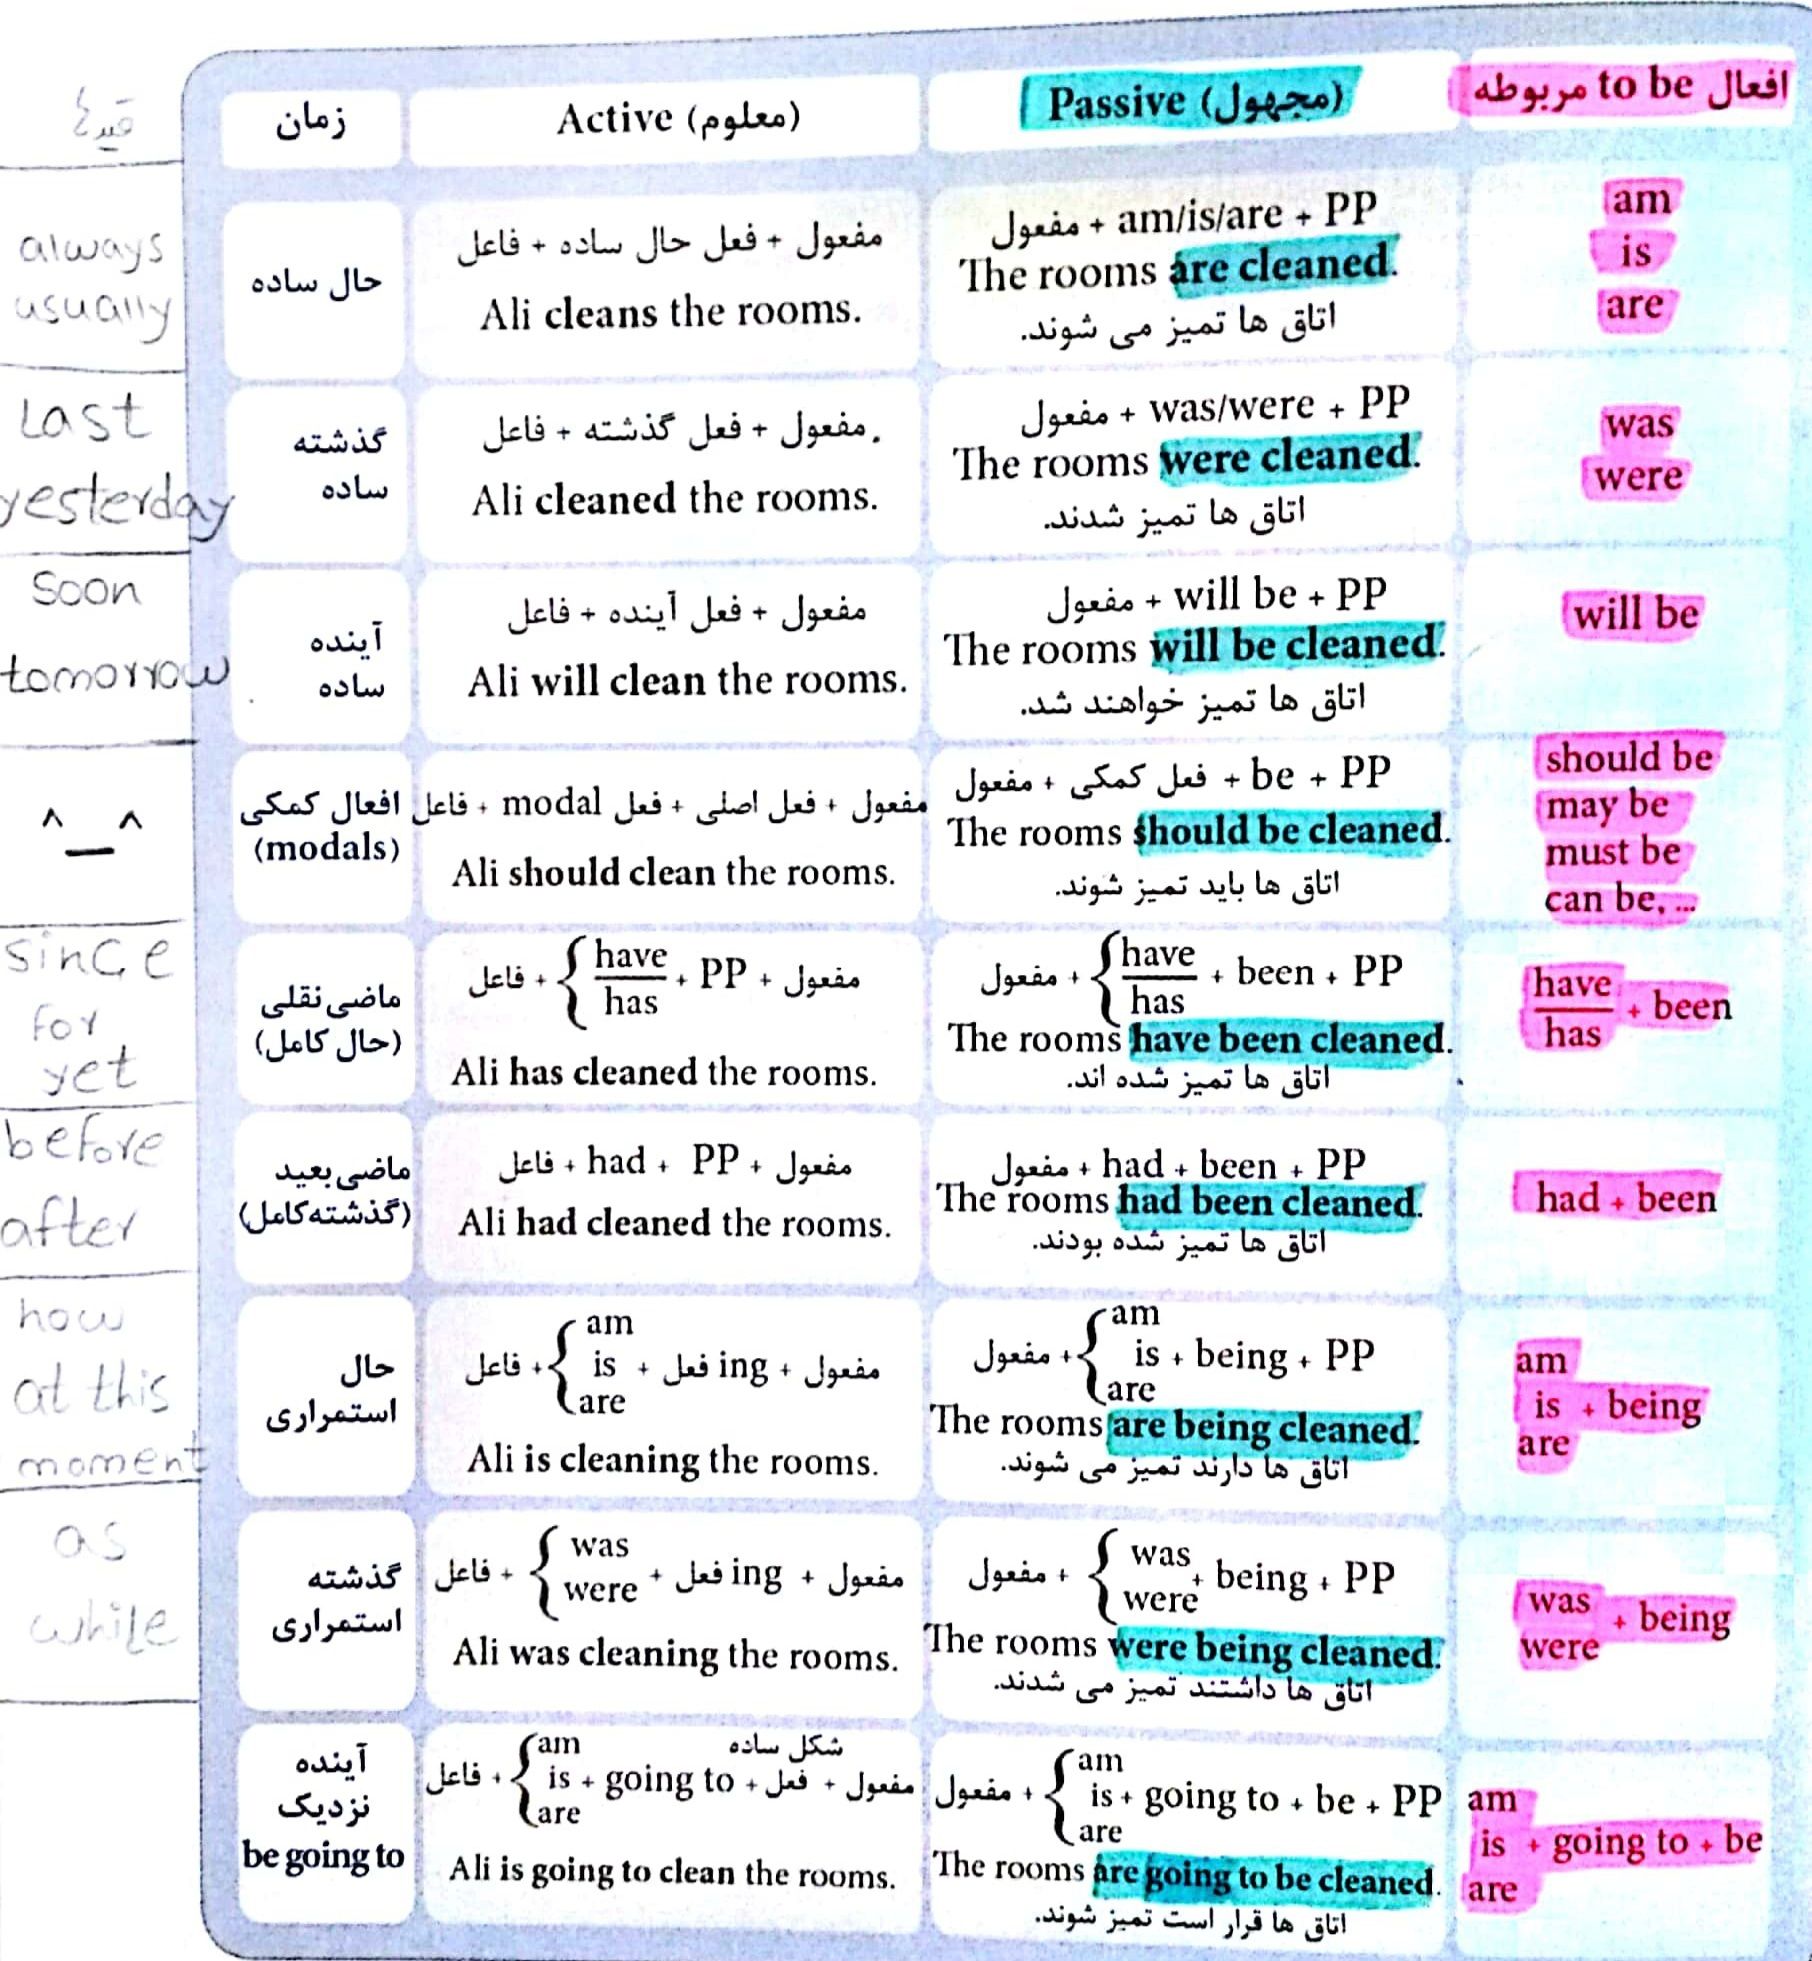 قیدها
زمان
Active (معلوم)
Passive (مجهول)
افعال to be مربوطه
always
usually
حال ساده
فاعل + فعل حال ساده + مفعول
Ali cleans the rooms.
مفعول + am/is/are + PP
The rooms are cleaned.
اتاق ها تمیز می شوند.
am
is
are
Last
yesterday
گذشته
ساده
فاعل + فعل گذشته + مفعول.
Ali cleaned the rooms.
مفعول + was/were + PP
The rooms were cleaned.
اتاق ها تمیز شدند.
was
were
soon
tomorrow
آینده
ساده
فاعل + فعل آینده + مفعول
Ali will clean the rooms.
مفعول + will be + PP
The rooms will be cleaned.
اتاق ها تمیز خواهند شد.
will be
^_^
افعال کمکی
(modals)
فاعل + modal فعل + فعل اصلی + مفعول
Ali should clean the rooms.
مفعول + فعل کمکی + be + PP
The rooms should be cleaned.
اتاق ها باید تمیز شوند.
should be
may be
must be
can be, ...
since
for
yet
ماضی نقلی
(حال کامل)
have
فاعل + { + PP + مفعول
has
Ali has cleaned the rooms.
have
مفعول + { + been + PP
has
The rooms have been cleaned.
اتاق ها تمیز شده اند.
have
+ been
has
before
after
ماضی بعید
(گذشته کامل)
فاعل + had + PP + مفعول
Ali had cleaned the rooms.
مفعول + had + been + PP
The rooms had been cleaned.
اتاق ها تمیز شده بودند.
had + been
now
at this
moment
حال
استمراری
am
فاعل + { is + فعل ing + مفعول
are
Ali is cleaning the rooms.
am
مفعول + { is + being + PP
are
The rooms are being cleaned.
اتاق ها دارند تمیز می شوند.
am
is + being
are
as
while
گذشته
استمراری
was
فاعل + { + فعل ing + مفعول
were
Ali was cleaning the rooms.
was
مفعول + { + being + PP
were
The rooms were being cleaned.
اتاق ها داشتند تمیز می شدند.
was
+ being
were
آینده
نزدیک
be going to
am شکل ساده
فاعل + { is + going to + فعل + مفعول
are
Ali is going to clean the rooms.
am
مفعول + { is + going to + be + PP
are
The rooms are going to be cleaned.
اتاق ها قرار است تمیز شوند.
am
is + going to + be
are